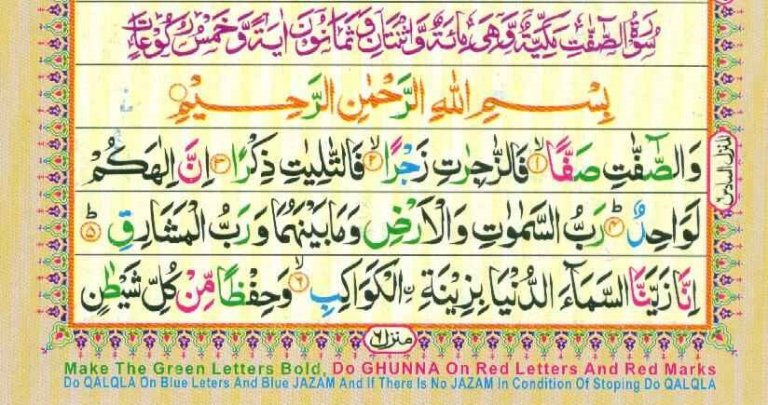 سُوْرَةُ الصّٰٓفّٰتِ مَكِّيَّةٌ وَّهِيَ مِائَةٌ وَّاثْنَتَانِ وَثَمَانُوْنَ اٰيَةً وَّخَمْسُ رُكُوْعَاتٍ
بِسْمِ اللهِ الرَّحْمٰنِ الرَّحِيْمِ
وَالصّٰٓفّٰتِ صَفًّا ۙ﴿۱﴾ فَالزّٰجِرٰتِ زَجْرًا ۙ﴿۲﴾ فَالتّٰلِيٰتِ ذِكْرًا ۙ﴿۳﴾ اِنَّ اِلٰهَكُمْ
لَوَاحِدٌ ؕ﴿۴﴾ رَبُّ السَّمٰوٰتِ وَالْاَرْضِ وَمَا بَيْنَهُمَا وَرَبُّ الْمَشَارِقِ ؕ﴿۵﴾
اِنَّا زَيَّنَّا السَّمَآءَ الدُّنْيَا بِزِيْنَةِ ۨالْكَوَاكِبِ ۙ﴿۶﴾ وَحِفْظًا مِّنْ كُلِّ شَيْطٰنٍ
المنزل السادس
منزل ٦
Make The Green Letters Bold, Do GHUNNA On Red Letters And Red Marks
Do QALQLA On Blue Leters And Blue JAZAM And If There Is No JAZAM In Condition Of Stoping Do QALQLA